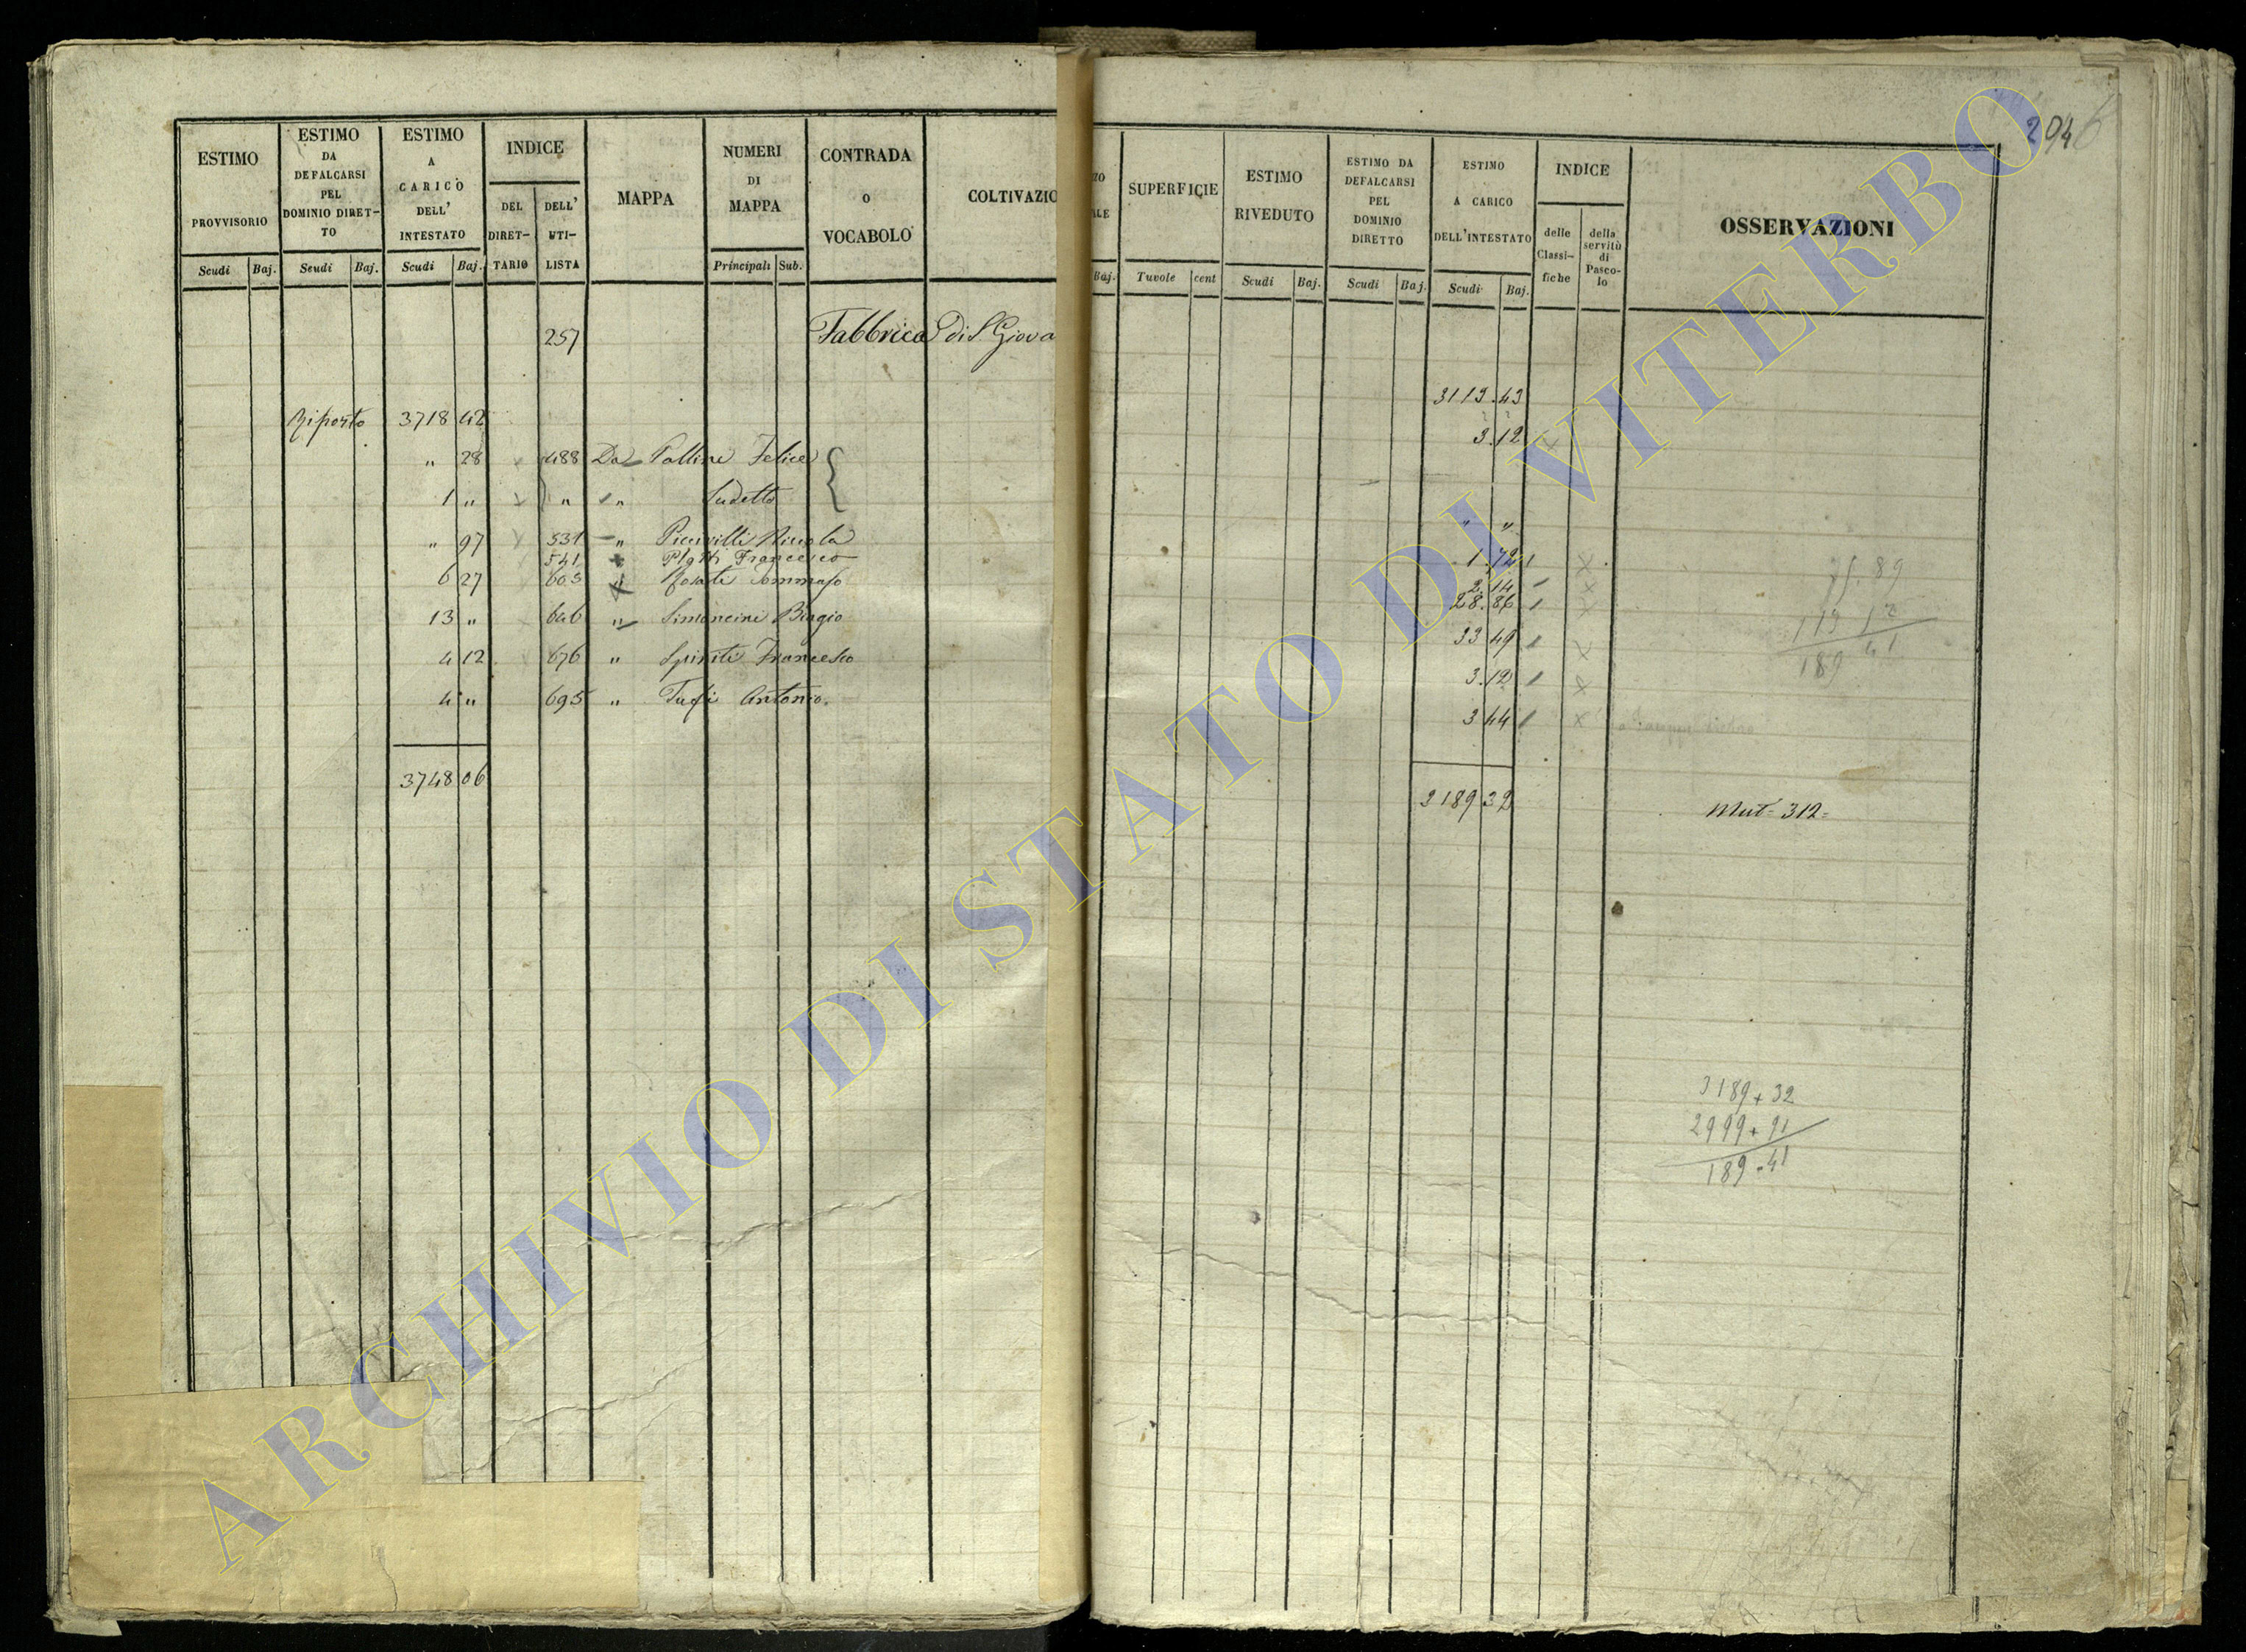 2946
ESTIMO PROVVISORIO
Scudi Baj.
ESTIMO DA DEFALCARSI PEL DOMINIO DIRET-TO
Scudi Baj.
ESTIMO A CARICO DELL' INTESTATO
Scudi Baj.
INDICE
DEL DIRET-TARIO
DELL' UTI-LISTA
MAPPA
NUMERI DI MAPPA
Principali Sub.
CONTRADA O VOCABOLO
COLTIVAZIO
257 Fabbrica di S. Giova
Riporto 3718 42
" 28 488 Da Felice
1 " " " Sudetto
" 97 531 " Nicola
541 Francesco
6 27 603 Rosati Tommaso
13 " 646 " Simoncini Biagio
4 12 676 " Spiriti Francesco
4 " 695 " Tufi Antonio.
3748 06
Baj.
SUPERFICIE
Tavole cent
ESTIMO RIVEDUTO
Scudi Baj.
ESTIMO DA DEFALCARSI PEL DOMINIO DIRETTO
Scudi Baj.
ESTIMO A CARICO DELL'INTESTATO
Scudi Baj.
INDICE
delle Classi-fiche
della servitù di Pasco-lo
OSSERVAZIONI
3113.43
3.12
" "
1.72
2.14
28.86
33 49
3.12
3 44
3189 32
75.89
113 12
189 41
Mut= 312=
3189+32
2999+91
189.41
ARCHIVIO DI STATO DI VITERBO